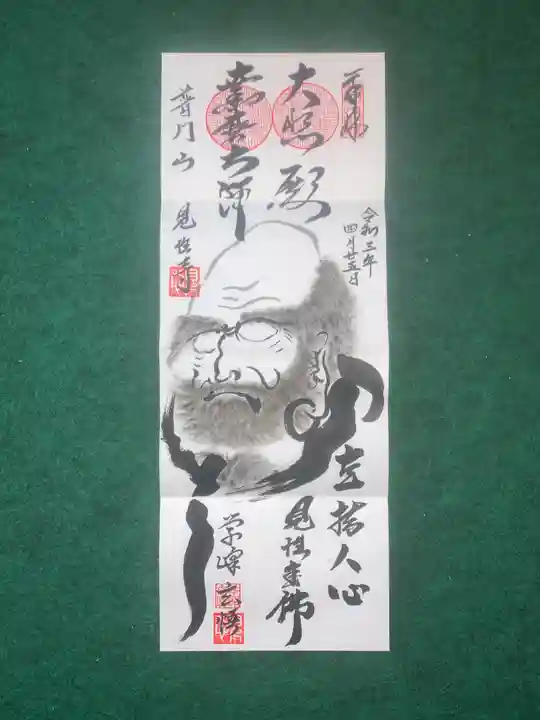 奉拝
令和三年
四月廿五日
大照殿
達磨大師
普門山
見性寺
直指人心
見性成佛
玄悟